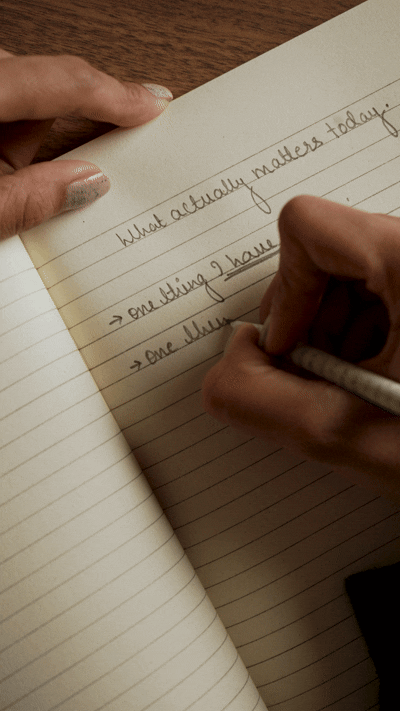 What actually matters today.
→ one thing I have
→ one thin